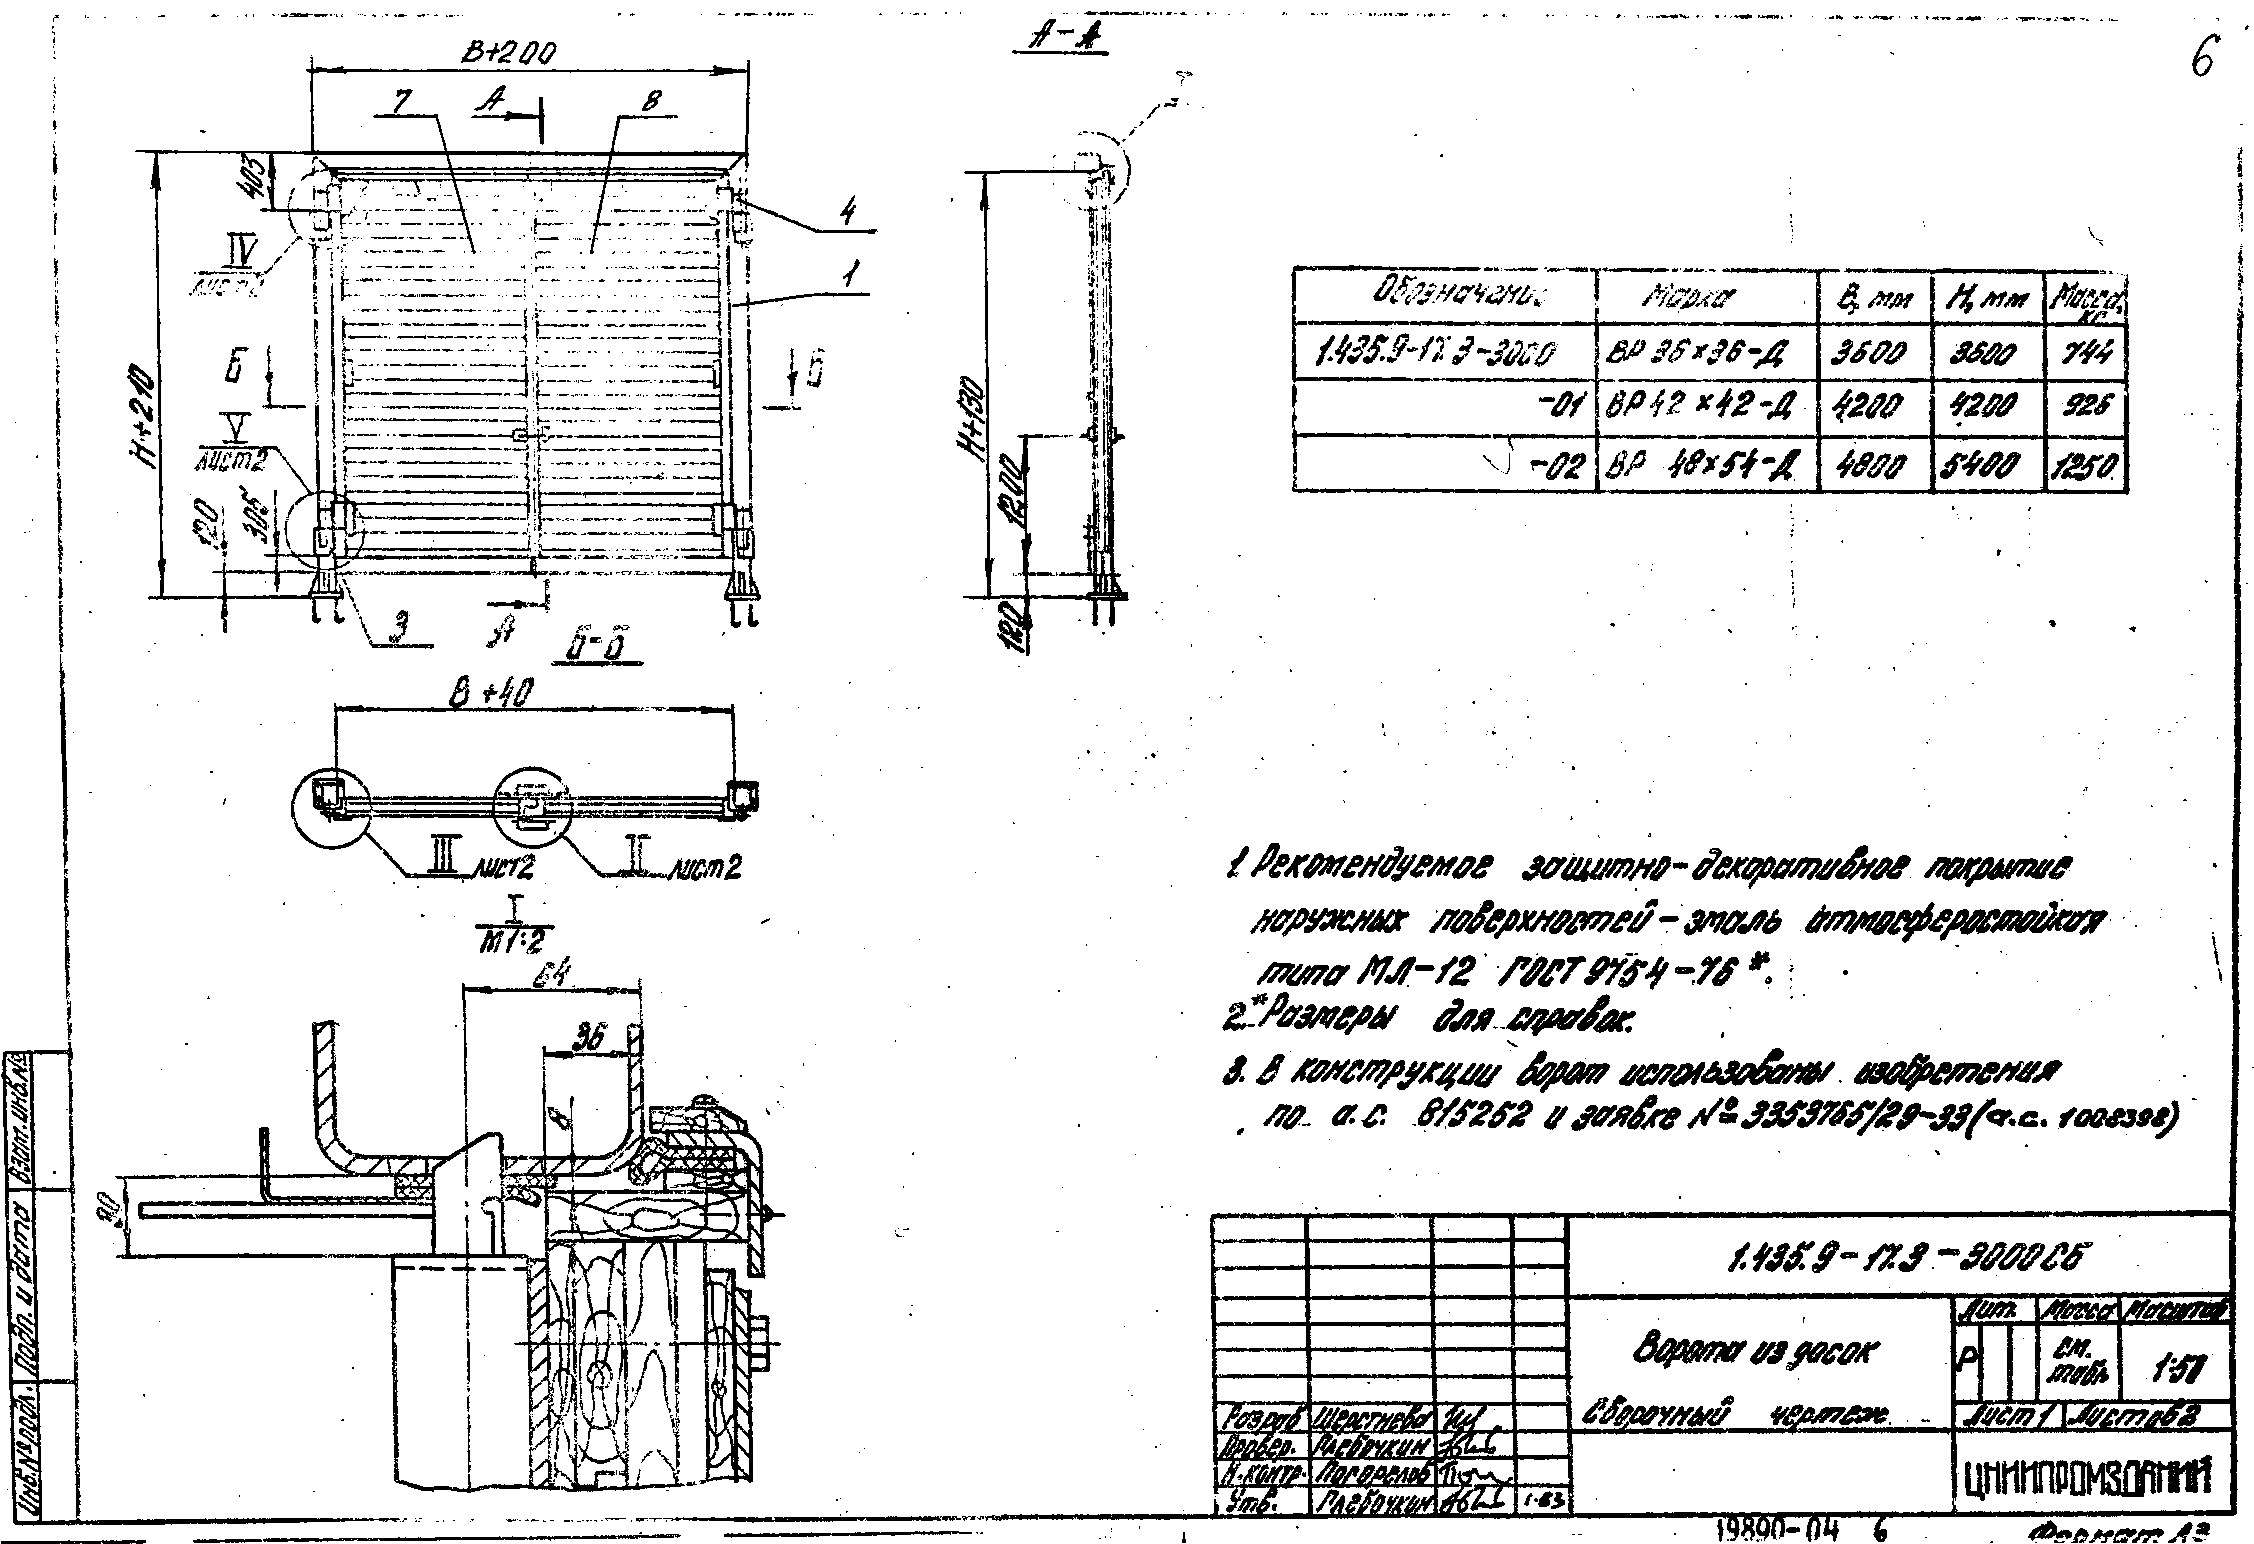 6
В+200
А-А
7
А
8
403
4
IV
лист 2
1
Б
Б
Н+210
V
лист 2
120
305
3
А
Н+130
1200
120
Обозначение Марка В, мм Н, мм Масса, кг
1.435.9-17.3-3000 ВР 36×36-Д 3600 3600 744
-01 ВР 42×42-Д 4200 4200 926
-02 ВР 48×54-Д 4800 5400 1250
Б-Б
В+40
III лист 2
II лист 2
I
М 1:2
64
36
8
1. Рекомендуемое защитно-декоративное покрытие
наружных поверхностей - эмаль атмосферостойкая
типа МЛ-12 ГОСТ 9754-76*.
2.* Размеры для справок.
3. В конструкции ворот использованы изобретения
по а.с. 815262 и заявке №3353765/29-33 (а.с. 1008398)
1.435.9-17.3-3000СБ
Ворота из досок
Сборочный чертеж
Лит. Масса Масштаб
Р см. табл. 1:50
Лист 1 Листов 2
ЦНИИПРОМЗДАНИЙ
Разраб. Шерстнева
Провер. Плебочкин
Н.контр. Погорелов
Утв. Глебочкин 1-83
Взам. инв. №
Подп. и дата
Инв. № подл.
19890-04 6
Формат А3